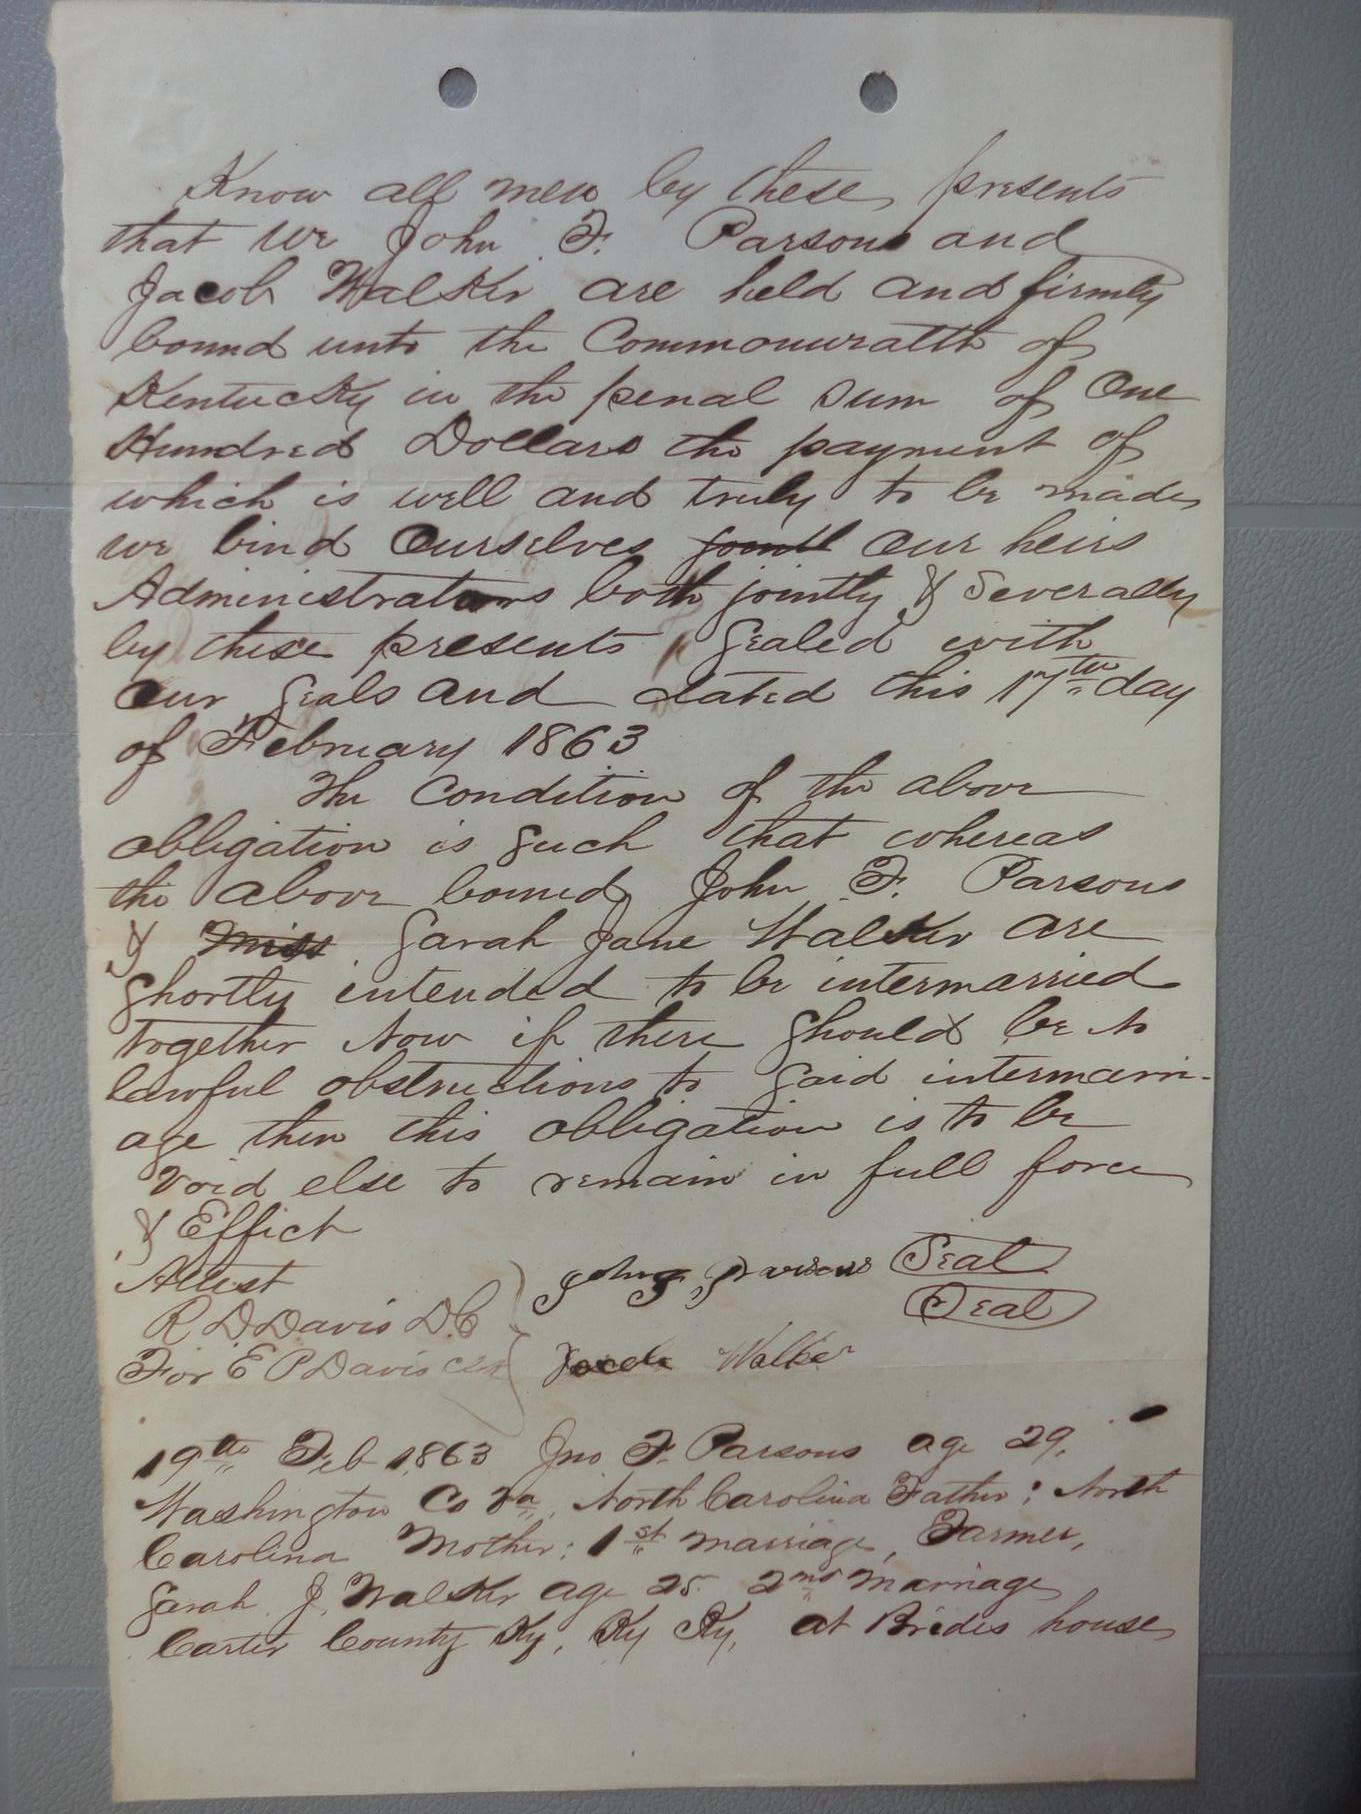 Know all men by these presents
that we John F. Parsons and
Jacob Walker are held and firmly
bound unto the Commonwealth of
Kentucky in the penal sum of One
Hundred Dollars the payment of
which is well and truly to be made
we bind Ourselves our heirs
Administrators both jointly & Severally
by these presents Sealed with
Our Seals and dated this 17th day
of February 1863
The Condition of the above
obligation is Such that whereas
the above bound John F. Parsons
& Miss Sarah Jane Walker are
Shortly intended to be intermarried
together Now if there Should be no
lawful obstructions to Said intermarri-
age then this obligation is to be
Void else to remain in full force
& Effect
Attest
John F Parsons Seal
R D Davis D.C Seal
For E P Davis Clk Jacob Walker
19th Feb 1863 Jno F. Parsons age 29,
Washington Co Va, North Carolina Father; North
Carolina Mother; 1st marriage, Farmer,
Sarah J. Walker age 25 2nd Marriage
Carter County Ky, Ky Ky, at Brides house